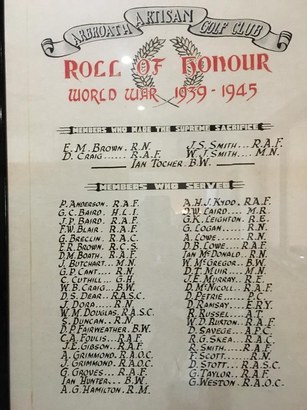 ARBROATH ARTISAN GOLF CLUB
ROLL OF HONOUR
WORLD WAR 1939-1945
MEMBERS WHO MADE THE SUPREME SACRIFICE
E.M. BROWN. R.N. J.S. SMITH.... R.A.F.
D. CRAIG...... R.A.F. W.J. SMITH.... M.N.
IAN TOCHER. B.W.
MEMBERS WHO SERVED
P. ANDERSON. R.A.F.
G.C. BAIRD. H.L.I.
J.P. BAIRD. R.A.F.
F.W. BLAIR. R.A.F.
G. BRECLIN. R.A.C.
E.R. BROWN. R.C.S.
D.M. BOATH. R.A.F.
J. BUTCHART.
G.P. CANT.... R.N.
C. CUTHILL... G.H.
W.B. CRAIG... B.W.
D.S. DEAR.. R.A.S.C.
J. DORA..... R.N.
W.M. DOUGLAS. R.A.S.C.
S. DUNCAN... R.M.
D.P. FAIRWEATHER. B.W.
C.A. FOULIS.. R.A.F.
J.E. GIBSON.. R.A.F.
A. GRIMMOND. R.A.O.C.
J. GRIMMOND. R.A.O.C.
G. GROVES... R.A.F.
IAN HUNTER... B.W.
A.G. HAMILTON. R.M.
A.H.J. KYDD. R.A.F.
D.W. LAIRD.... M.R.
G.K. LEIGHTON. R.E.
G. LOGAN..... R.N.
A. LOWE...... R.N.
D.B. LOWE... R.A.F.
IAN MCDONALD. R.M.
W. MCGREGOR.. B.W.
D.T. MUIR.... M.N.
J.E. MURRAY.. R.E.
D. MCNICOLL. R.A.F.
D. PETRIE..... P.C.
D. RAMSAY... E.R.Y.
R. RUSSEL... A.T.
W.D. RUXTON. R.A.F.
D. SAVEGE... A.P.C.
R.G. SKEA... R.A.C.
R. SMITH... R.A.F.
F. SCOTT.... R.N.
D. STOTT.. R.A.S.C.
G. TAYLOR.. R.A.F.
G. WESTON. R.A.O.C.